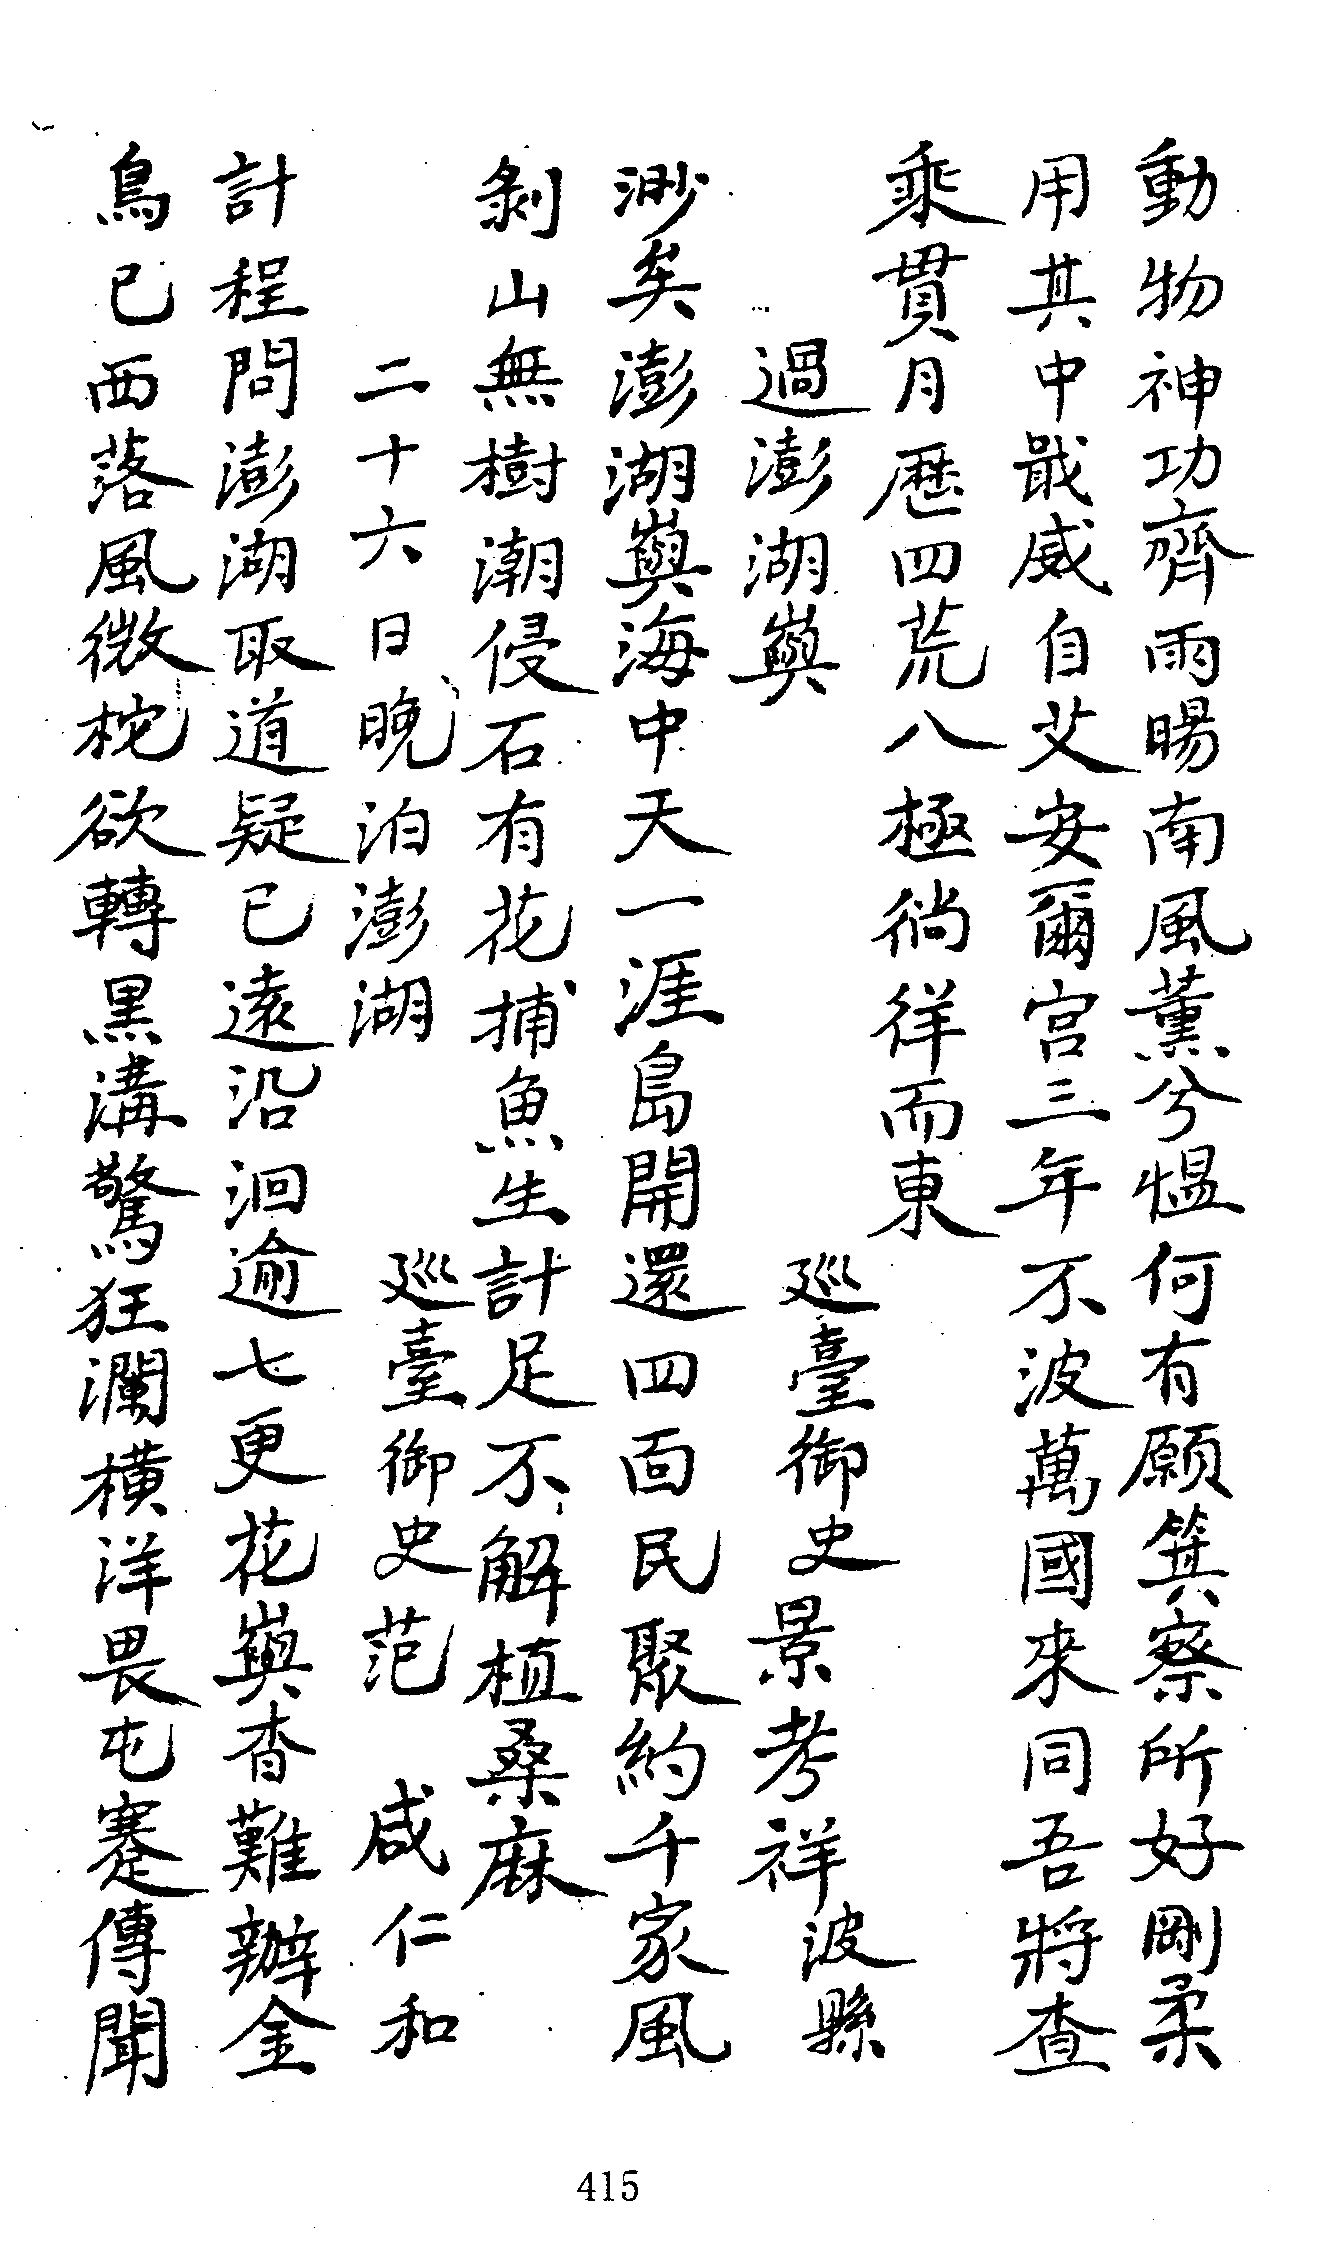 動物神功齊雨暘南風薰兮慍何有願箕察所好剛柔
用其中戢威自艾安爾宮三年不波萬國來同吾將查
乘貫月歷四荒八極徜徉而東
過澎湖嶼　巡臺御史景考祥波縣
渺矣澎湖嶼海中天一涯島開還四面民聚約千家風
剝山無樹潮侵石有花捕魚生計足不解植桑麻
二十六日晚泊澎湖　巡臺御史范　咸仁和
計程問澎湖取道疑已遠沿洄逾七更花嶼杳難辦金
烏已西落風微柁欲轉黑溝驚狂瀾橫洋畏屯蹇傳聞
415